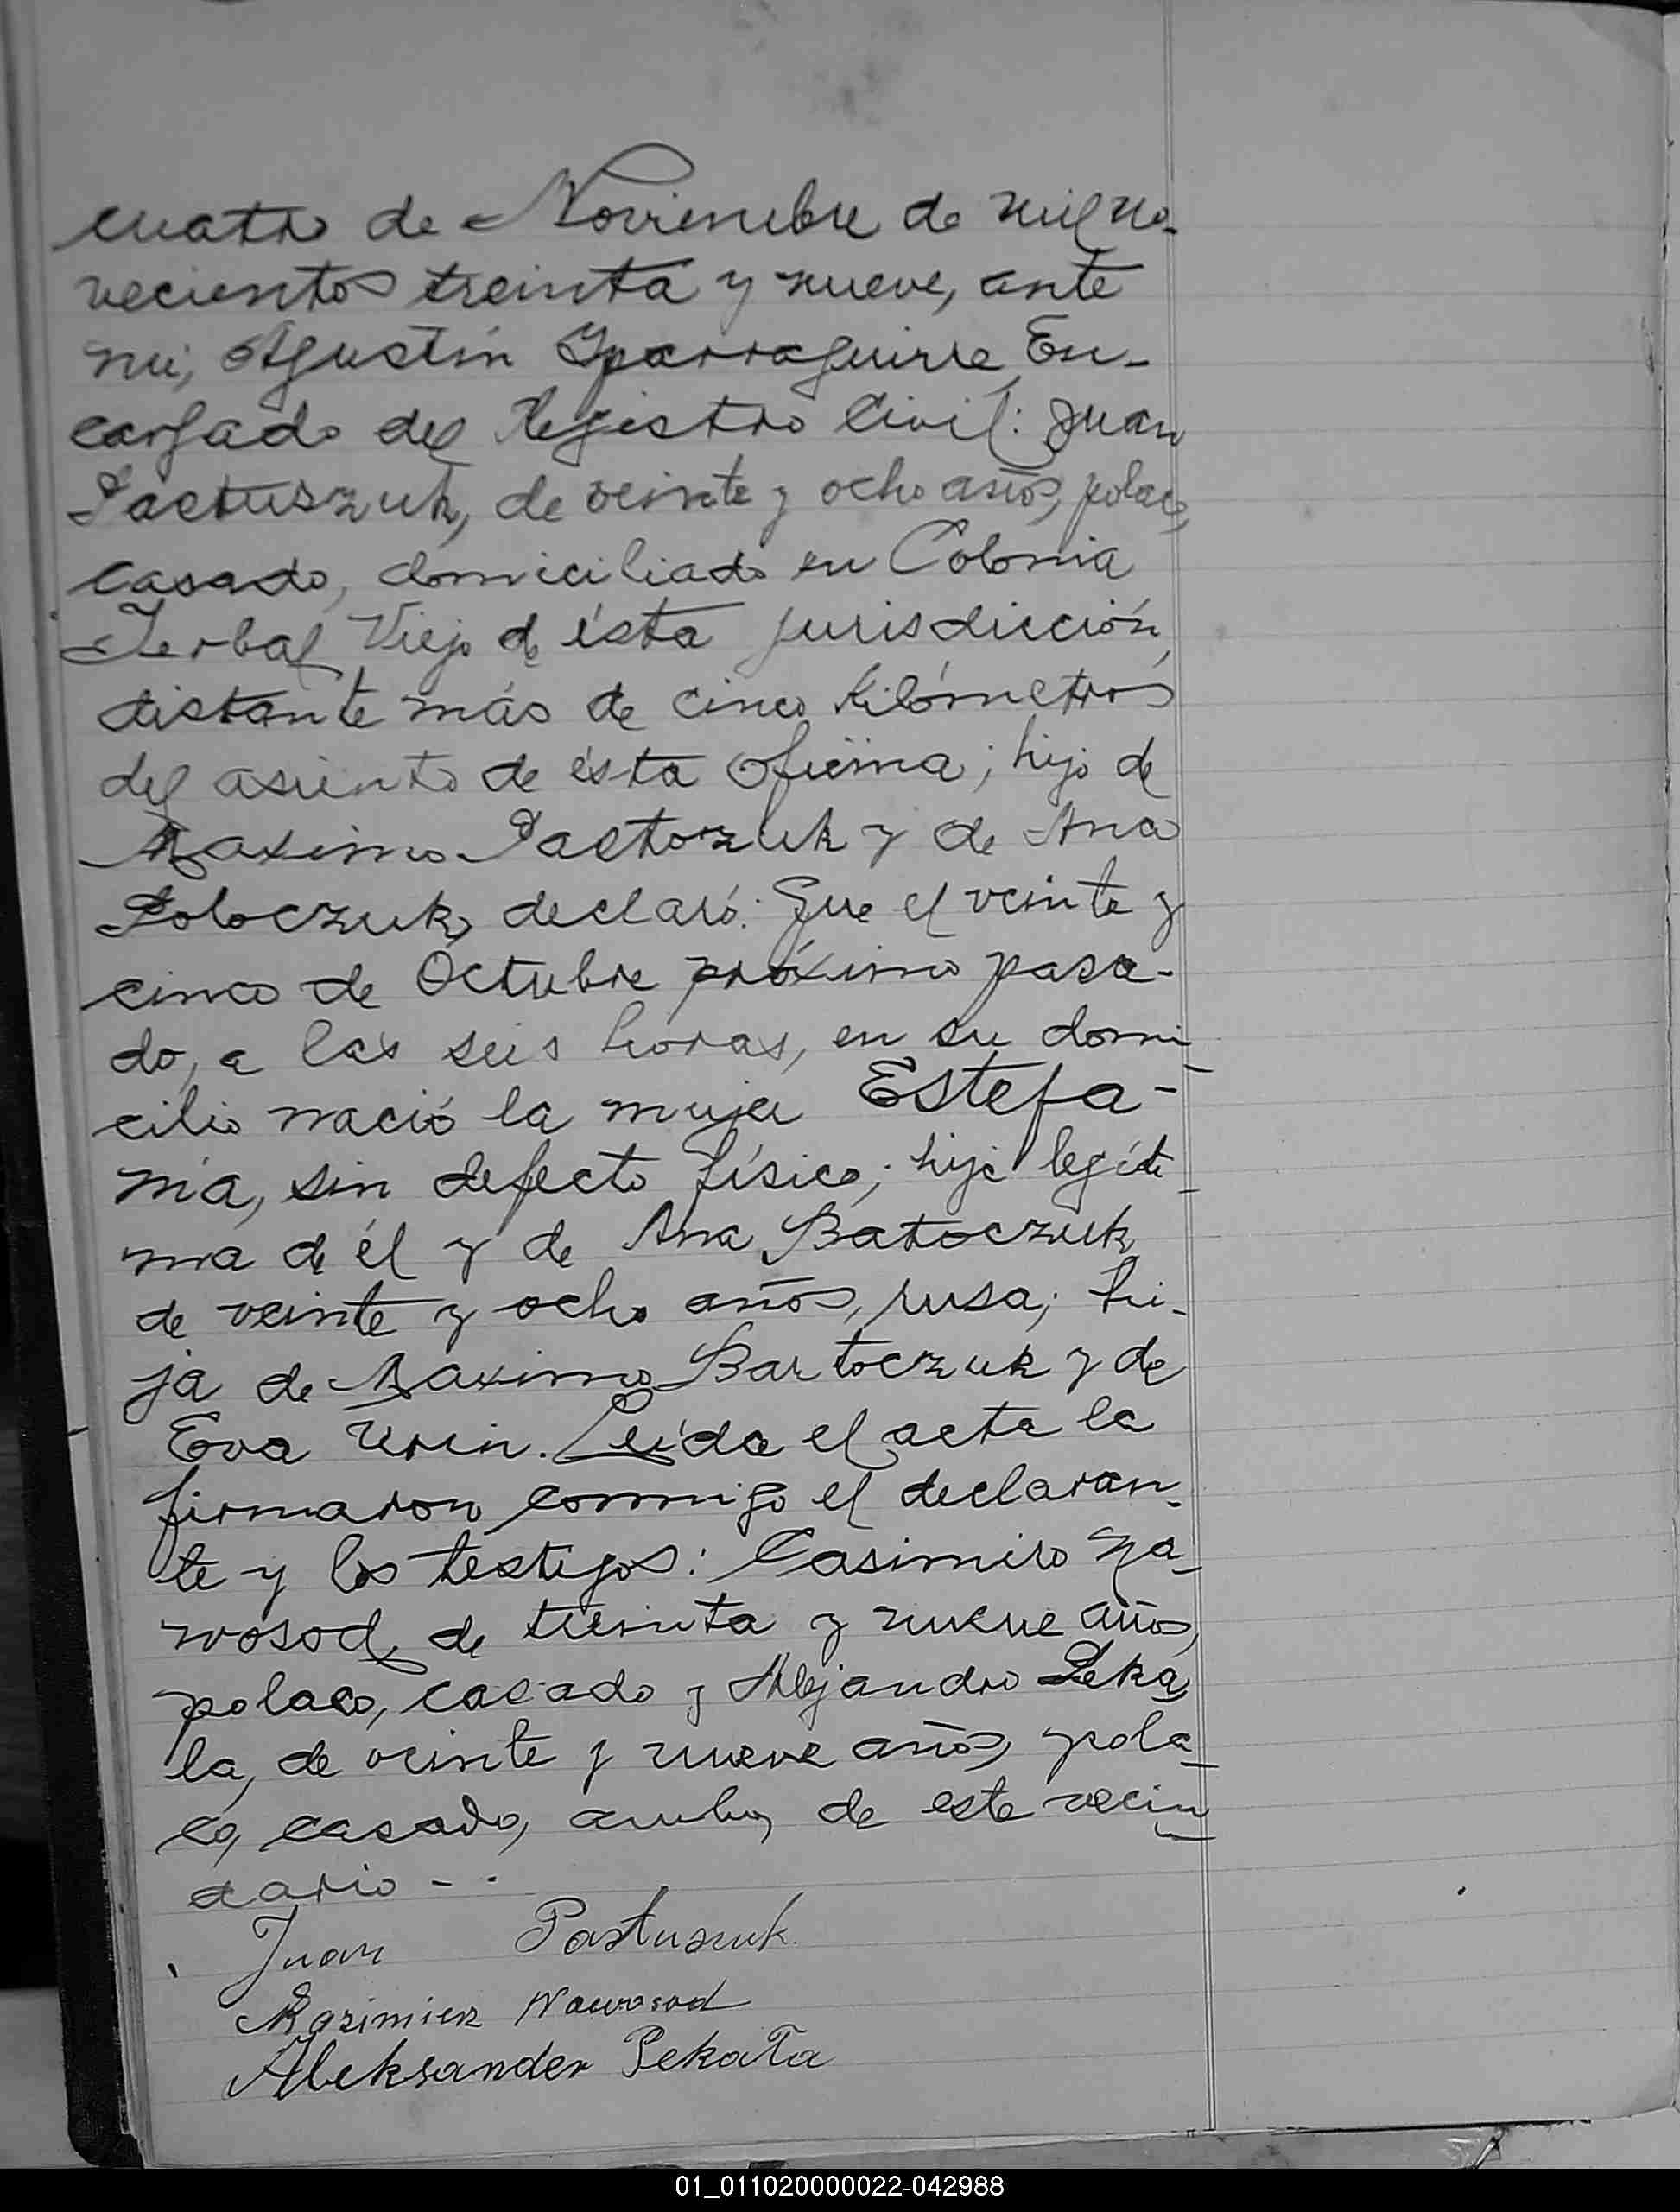 cuatro de Noviembre de mil no-
vecientos treinta y nueve, ante
mi, Agustín Yparraguirre, En-
cargado del Registro Civil: Juan
Pastuszuk, de veinte y ocho años, polaco,
casado, domiciliado en Colonia
Yerbal Viejo de ésta jurisdicción,
distante más de cinco kilómetros
del asiento de ésta oficina; hijo de
Maximo Pactozuk y de Ana
Poloczuk, declaró: Que el veinte y
cinco de Octubre próximo pasa-
do, a las seis horas, en su domi-
cilio nació la mujer Estefa-
nía, sin defecto físico; hija legíti-
ma de él y de Ana Batoczuk,
de veinte y ocho años, rusa; hi-
ja de Maximo Bartoczuk y de
Eva Urin. Leída el acta la
firmaron conmigo el declaran-
te y los testigos: Casimiro Na-
wosod, de treinta y nueve años,
polaco, casado y Alejandro Peka-
la, de veinte y nueve años, pola-
co, casado, ambos de este vecin-
dario - -
Juan Pastuszuk
Kazimierz Nawosad
Aleksander Pekała
01_011020000022-042988